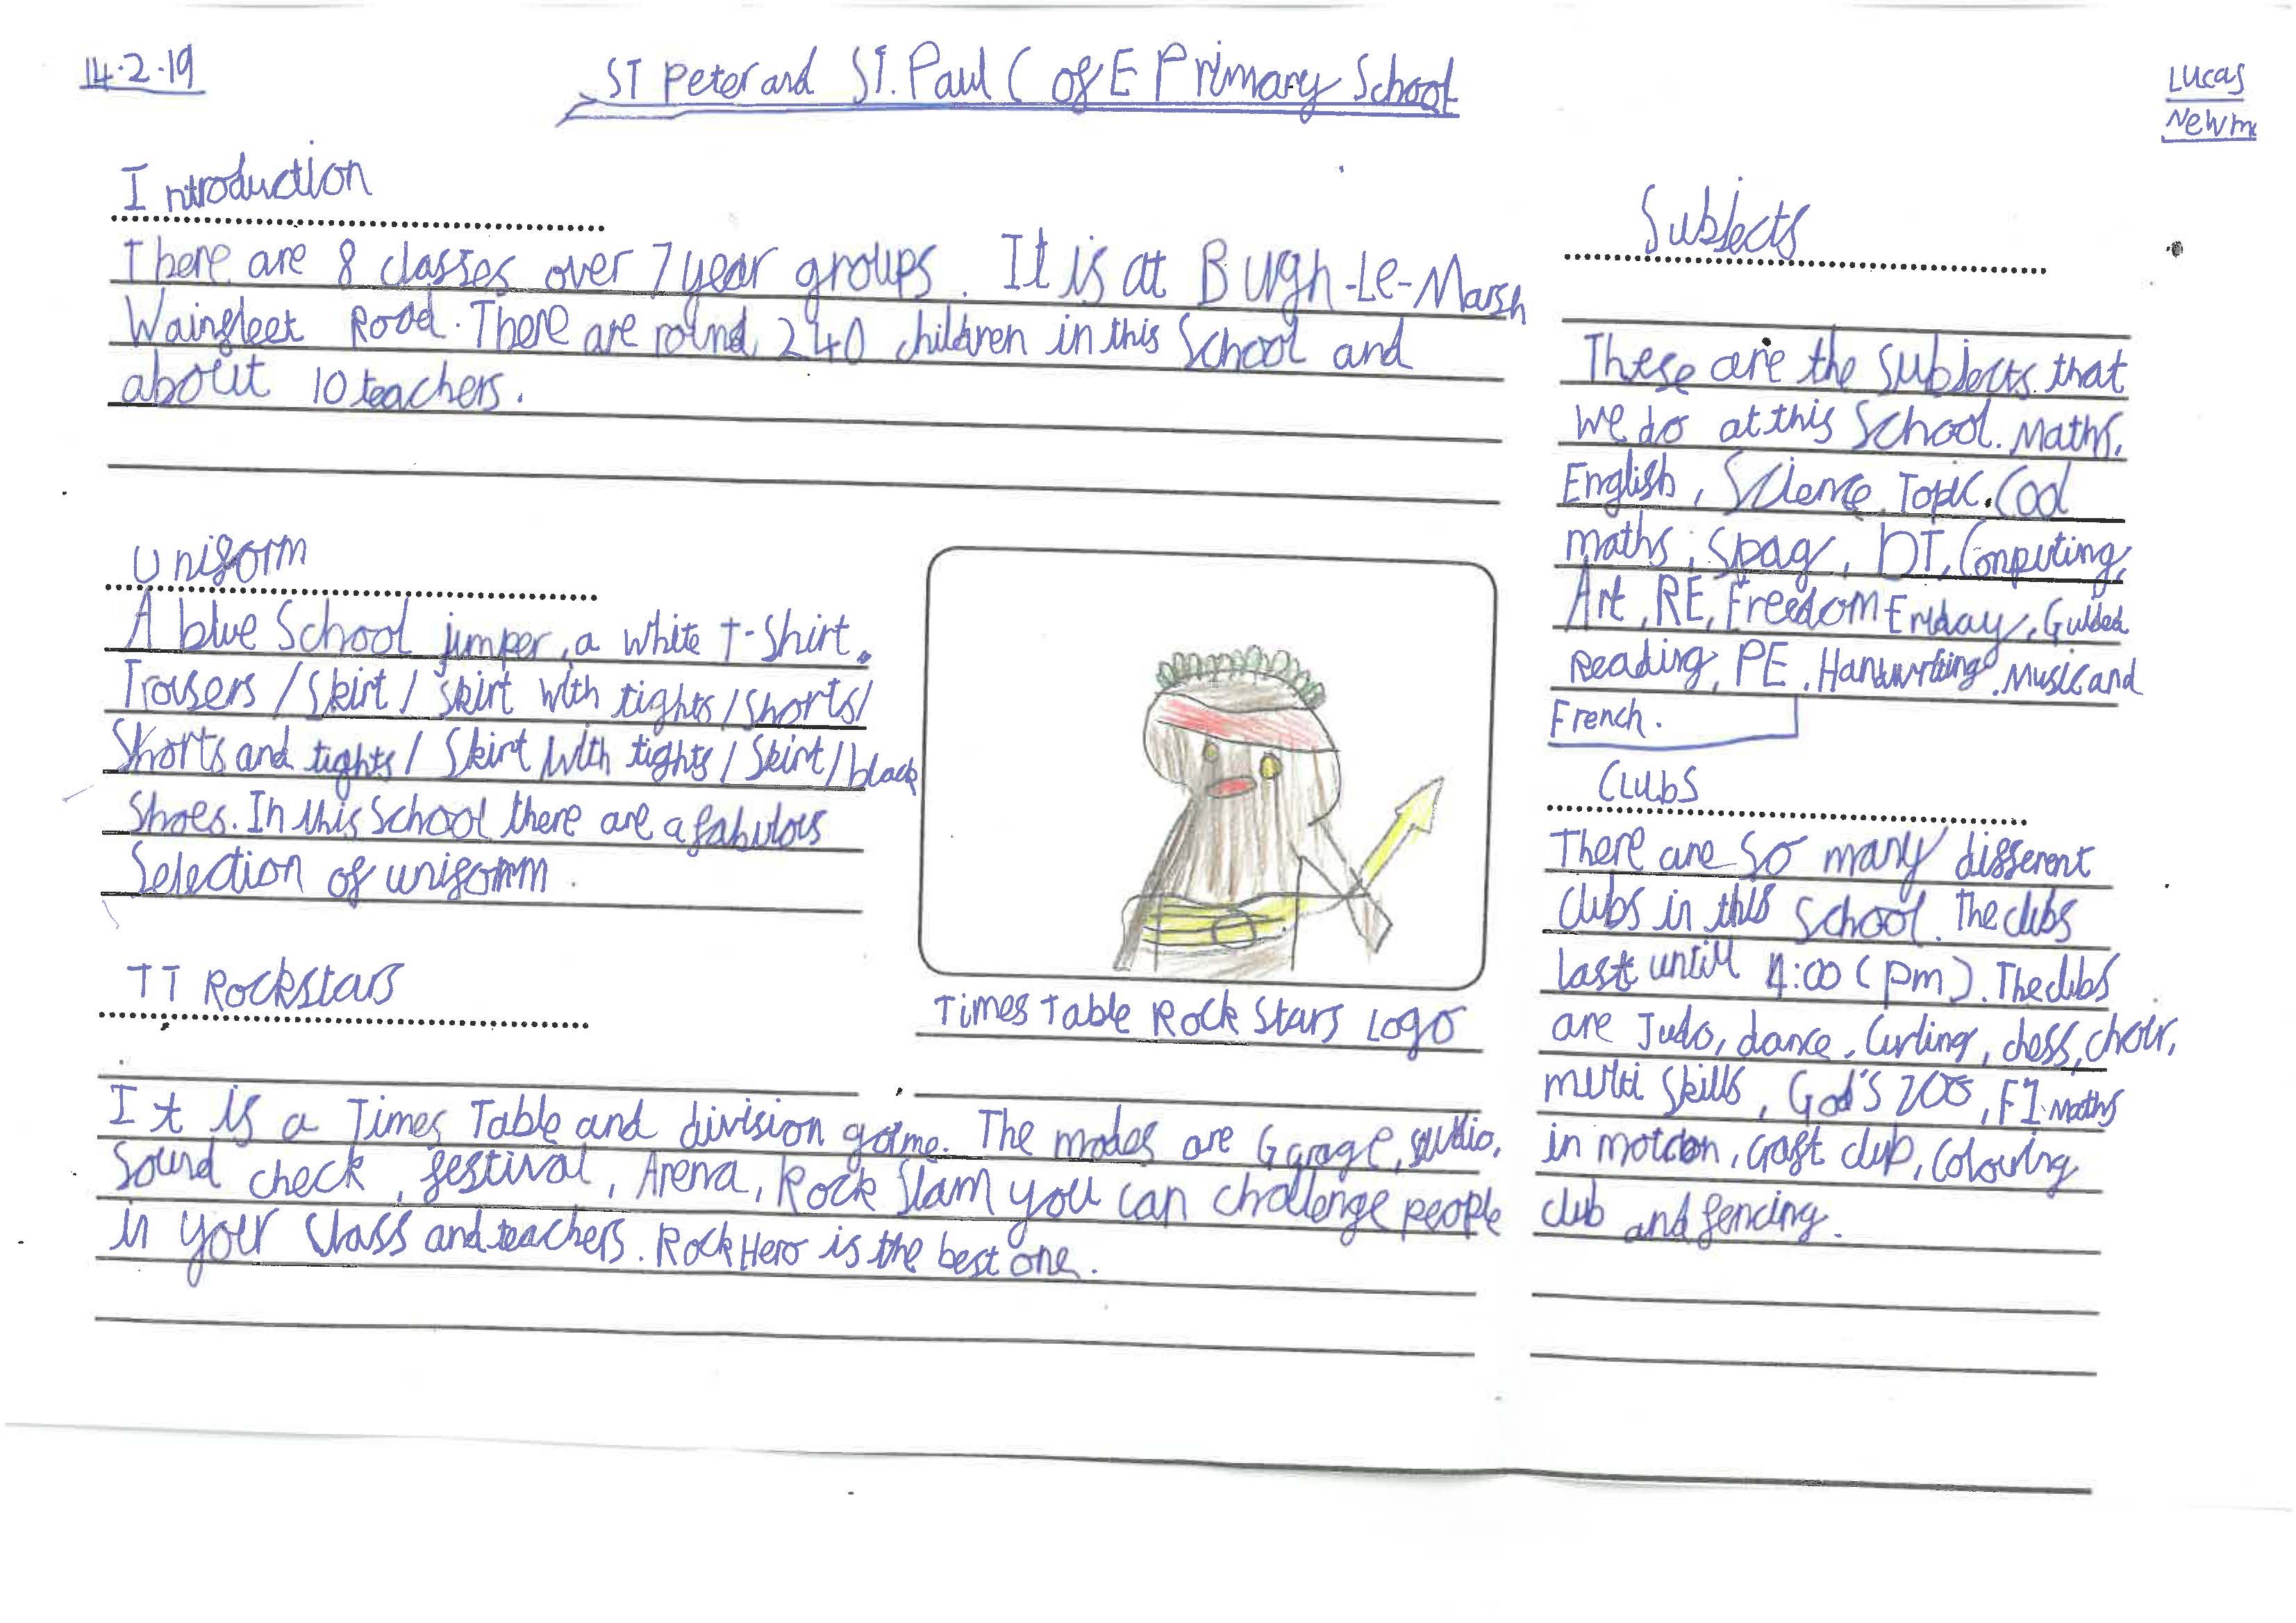 14.2.19
ST Peter and ST. Paul C of E Primary School
Lucas
Introduction
There are 8 classes over 7 year groups. It is at Burgh-Le-Marsh
Wainfleet Road. There are round 240 children in this School and
about 10 teachers.
Uniform
A blue School jumper, a white T-Shirt.
Trousers / Skirt / Skirt with tights / Shorts /
Shorts and tights / Skirt with tights / Skirt / black
Shoes. In this School there are a fabulous
Selection of uniform.
Times Table Rock Stars Logo
TT Rockstars
It is a Times Table and division game. The modes are Garage, studio,
Sound check, festival, Arena, Rock Slam you can challenge people
in your class and teachers. Rock Hero is the best one.
Subjects
These are the Subjects that
we do at this School. Maths,
English, Science, Topic. Cool
maths, Spag, DT, Computing,
Art, RE, Freedom Friday, Guided
Reading, PE, Handwriting, Music and
French.
Clubs
There are so many different
clubs in this School. The clubs
last until 4:00 (pm). The clubs
are Judo, dance, Curling, chess, choir,
multi skills, God's zoo, F1, Maths
in motion, craft club, Colouring
club and fencing.